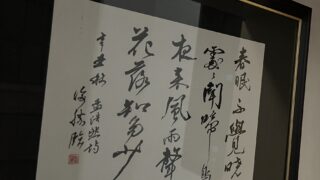 春眠不覺曉
處々聞啼鳥
夜来風雨聲
花落知多少
辛丑秋 孟浩然詩